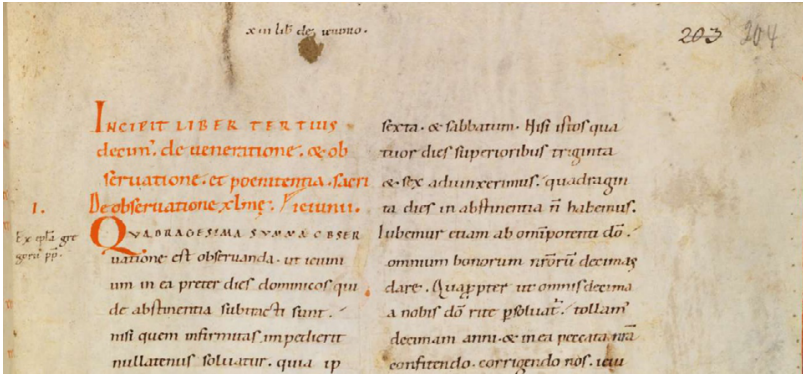 xiii lib̄ de ieiunio.
203 204
INCIPIT LIBER TERTIUS
decim'. de ueneratione. & ob
seruatione. et poenitentia. sacri
De obseruatione xlmę. ieiunii.
I.
Ex ep̄la gre
gorii pp̄.
QVADRAGESIMA SVMMA OBSER
uatione est obseruanda. ut ieiuni
um in ea preter dies dominicos qui
de abstinentia subtracti sunt.
nisi quem infirmitas impedierit
nullatenus soluatur. quia ip
sexta. & sabbatum. Nisi istos qua
tuor dies superioribus triginta
& sex adiunxerimus. quadragin
ta dies in abstinentia n̄ habemus.
Iubemur etiam ab omīpotenti dō.
omnium bonorum nr̄orū decimas
dare. Quapropter ut omnis decima
a nobis dō rite psoluat'. tollam'
decimam anni. & in ea peccata nr̄a
confitendo. corrigendo nos. ieiu